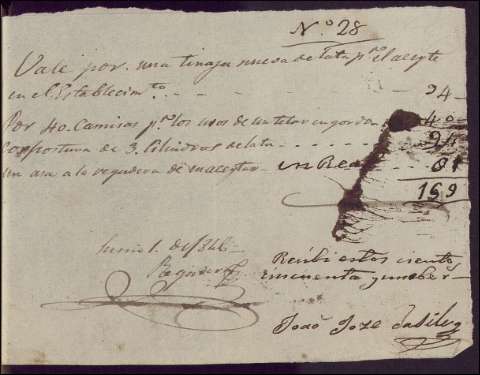 Nº 28
Vale por una tinaja nueva de lata pª el aceyte
en el Establecimto. 94
Por 40 Camisas pª los usos de un telar en gordon 40
Compostura de 3 Cilindros de lata
un asa a la regadera de macetas un Real 01
159
Junio 1. de
Recibi estos ciento
cincuenta y nuebe rs
João Joze da Silva